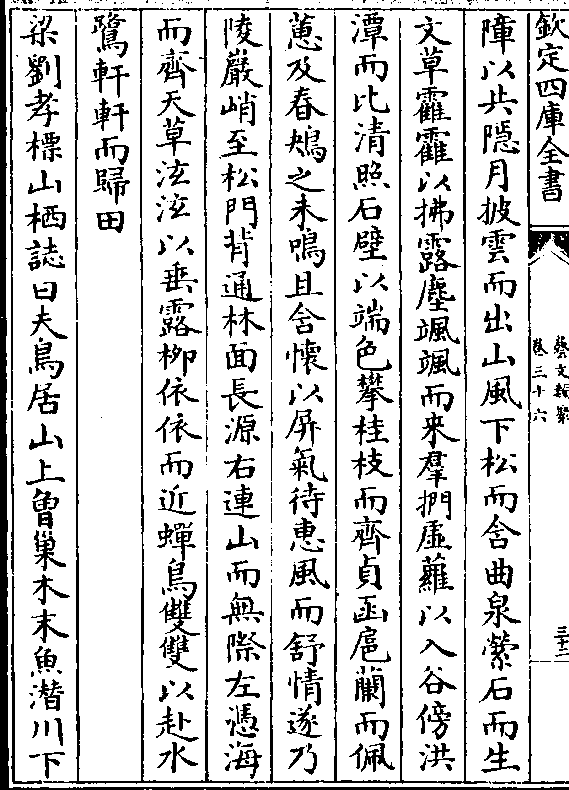 欽定四庫全書
藝文類聚
卷三十六
三十二
障以共隠月披雲而出山風下松而含曲泉縈石而生
文草靃靃以拂露塵颯颯而来羣捫虚蘿以入谷傍洪
潭而比清照石壁以端色攀桂枝而齊貞函扈蘭而佩
蕙及春鴂之未鳴且含懷以屏氣待恵風而舒情遂乃
陵巖峭至松門背通林面長源右連山而無際左憑海
而齊天草泫泫以垂露桞依依而近蟬鳥雙雙以赴水
鷺軒軒而歸田
梁劉孝標山栖誌曰夫鳥居山上曽巢木末魚潛川下